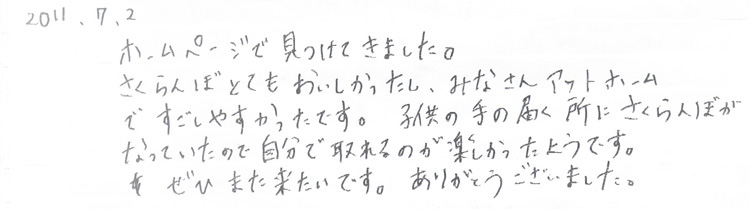 2011.7.2
ホームページで見つけてきました。
さくらんぼとてもおいしかったし、みなさんアットホーム
ですごしやすかったです。子供の手の届く所にさくらんぼが
なっていたので自分で取れるのが楽しかったようです。
ぜひまた来たいです。ありがとうございました。